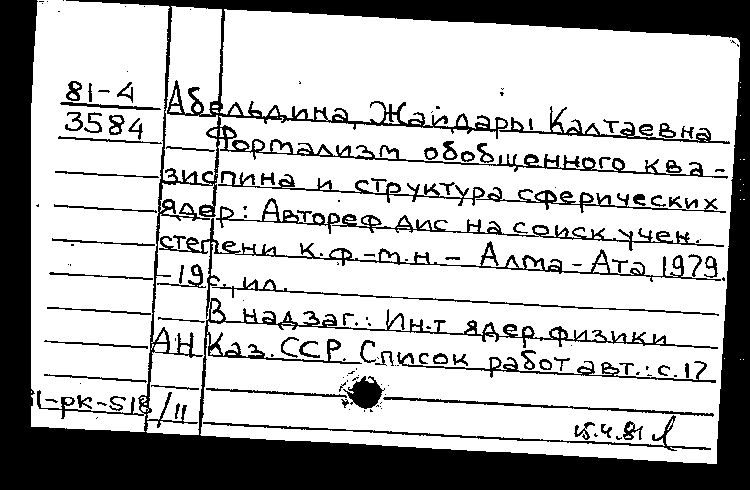 81-4 Абельдина, Жайдары Калтаевна
3584 Формализм обобщенного ква-
зиспина и структура сферических
ядер: Автореф. дис на соиск. учен.
степени к.ф.-т.н. - Алма-Ата, 1979.
-19с., ил.
В надзаг.: Ин.т ядер. физики
АН Каз. ССР. Список работ авт.: с.17
-рк-518/11
15.4.81